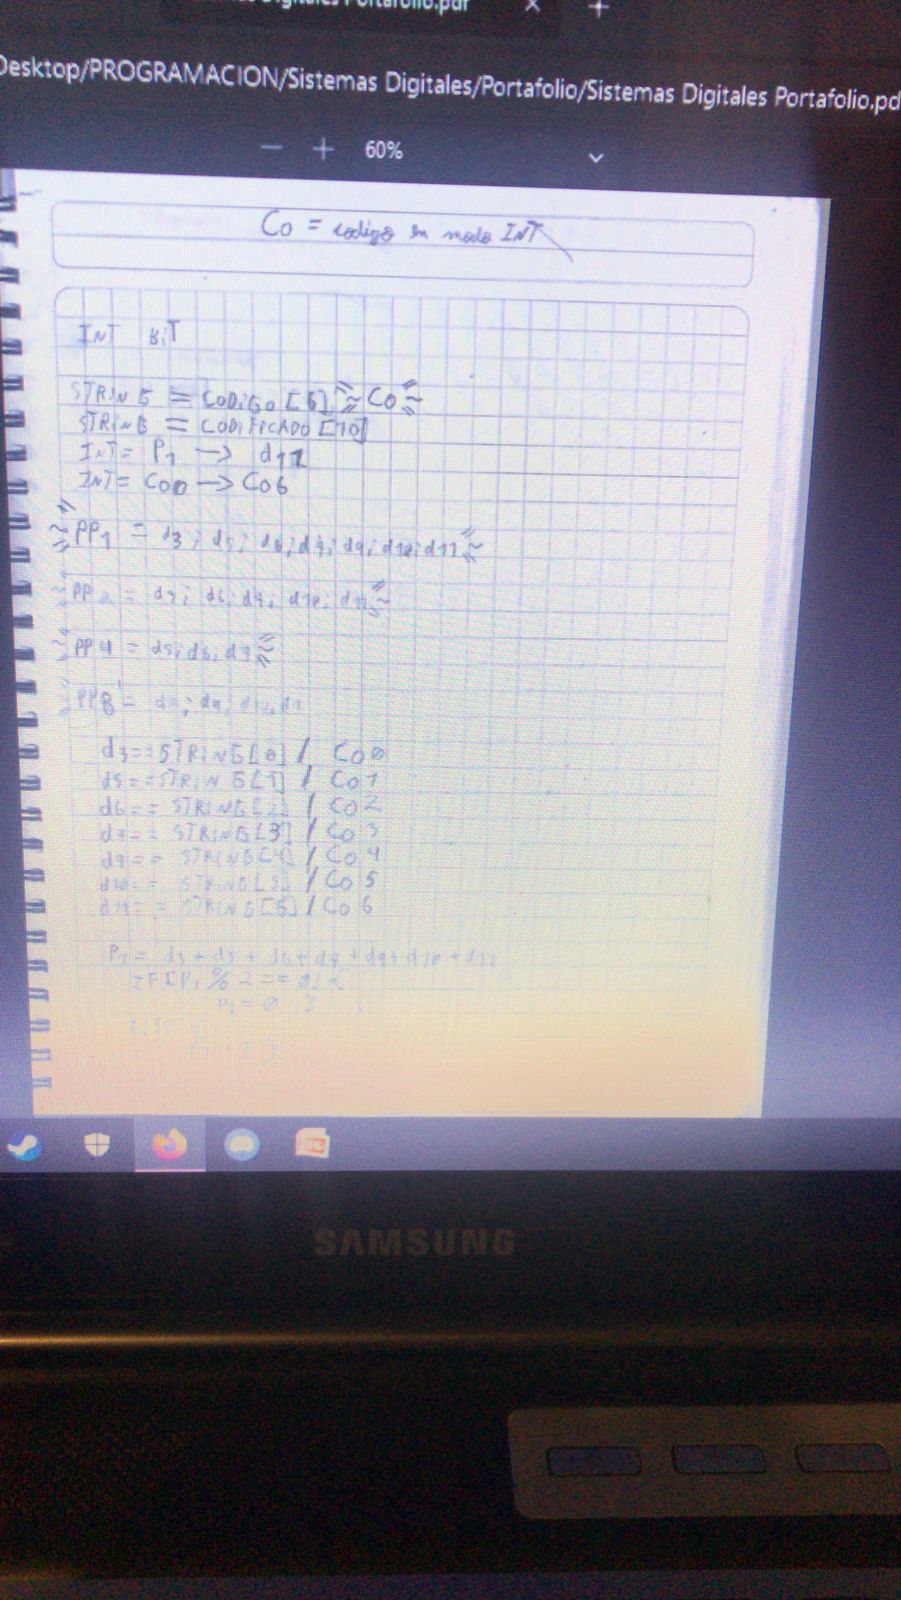 Desktop/PROGRAMACION/Sistemas Digitales/Portafolio/Sistemas Digitales Portafolio.pd
— + 60%
Co = codigo en modo INT
INT BiT
STRING = CODiGO [6] Co
STRING = CODIFICADO [10]
INT = P1 → d11
INT = Co0 → Co6
PP1 = d3; d5; d6; d7; d9; d10; d11
= d3; d6; d7; d10; d11
PP4 = d5; d6; d7
PP8 =
d3 == STRING[0] / Co0
d5 == STRING[1] / Co1
d6 == STRING[2] / Co2
d7 == STRING[3] / Co3
d9 == STRING[4] / Co4
d10 == STRING[5] / Co5
d11 == STRING[6] / Co6
P1 = d3 + d5 + d6 + d7 + d9 + d10 + d11
IF [P1 % 2 == 0] {
P1 = 0 }
SAMSUNG